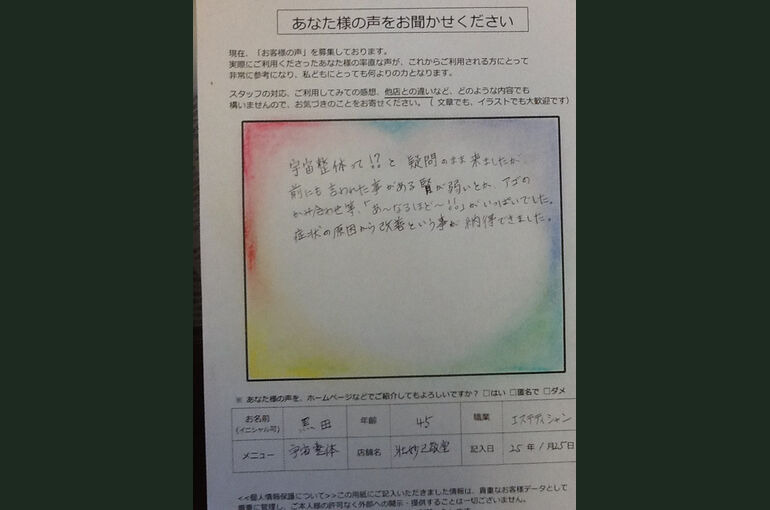 あなた様の声をお聞かせください
現在、「お客様の声」を募集しております。
実際にご利用くださったあなた様の率直な声が、これからご利用される方にとって
非常に参考になり、私どもにとっても何よりの力となります。
スタッフの対応、ご利用してみての感想、他店との違いなど、どのような内容でも
構いませんので、お気づきのことをお寄せください。（ 文章でも、イラストでも大歓迎です）
宇宙整体って!?と 疑問のまま来ましたが
前にも言われた事がある腎が弱いとか、アゴの
かみ合わせ等、「あ〜なるほど〜!!」がいっぱいでした。
症状の原因から改善という事が納得できました。
※ あなた様の声を、ホームページなどでご紹介してもよろしいですか？ □はい □匿名で □ダメ
お名前 (イニシャル可) 黒田 年齢 45 職業 エステティシャン
メニュー 宇宙整体 店舗名 記入日 25年1月25日
<<個人情報保護について>>この用紙にご記入いただきました情報は、貴重なお客様データとして
厳重に管理し、ご本人様の許可なく外部への開示・提供することは一切ございません。